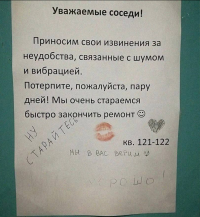 Уважаемые соседи!
Приносим свои извинения за
неудобства, связанные с шумом
и вибрацией.
Потерпите, пожалуйста, пару
дней! Мы очень стараемся
быстро закончить ремонт ☺
НУ
СТАРАЙТЕСЬ
кв. 121-122
МЫ В ВАС ВЕРИМ